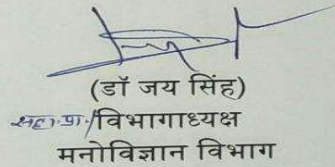 (डॉ जय सिंह)
सहा.प्रा./विभागाध्यक्ष
मनोविज्ञान विभाग